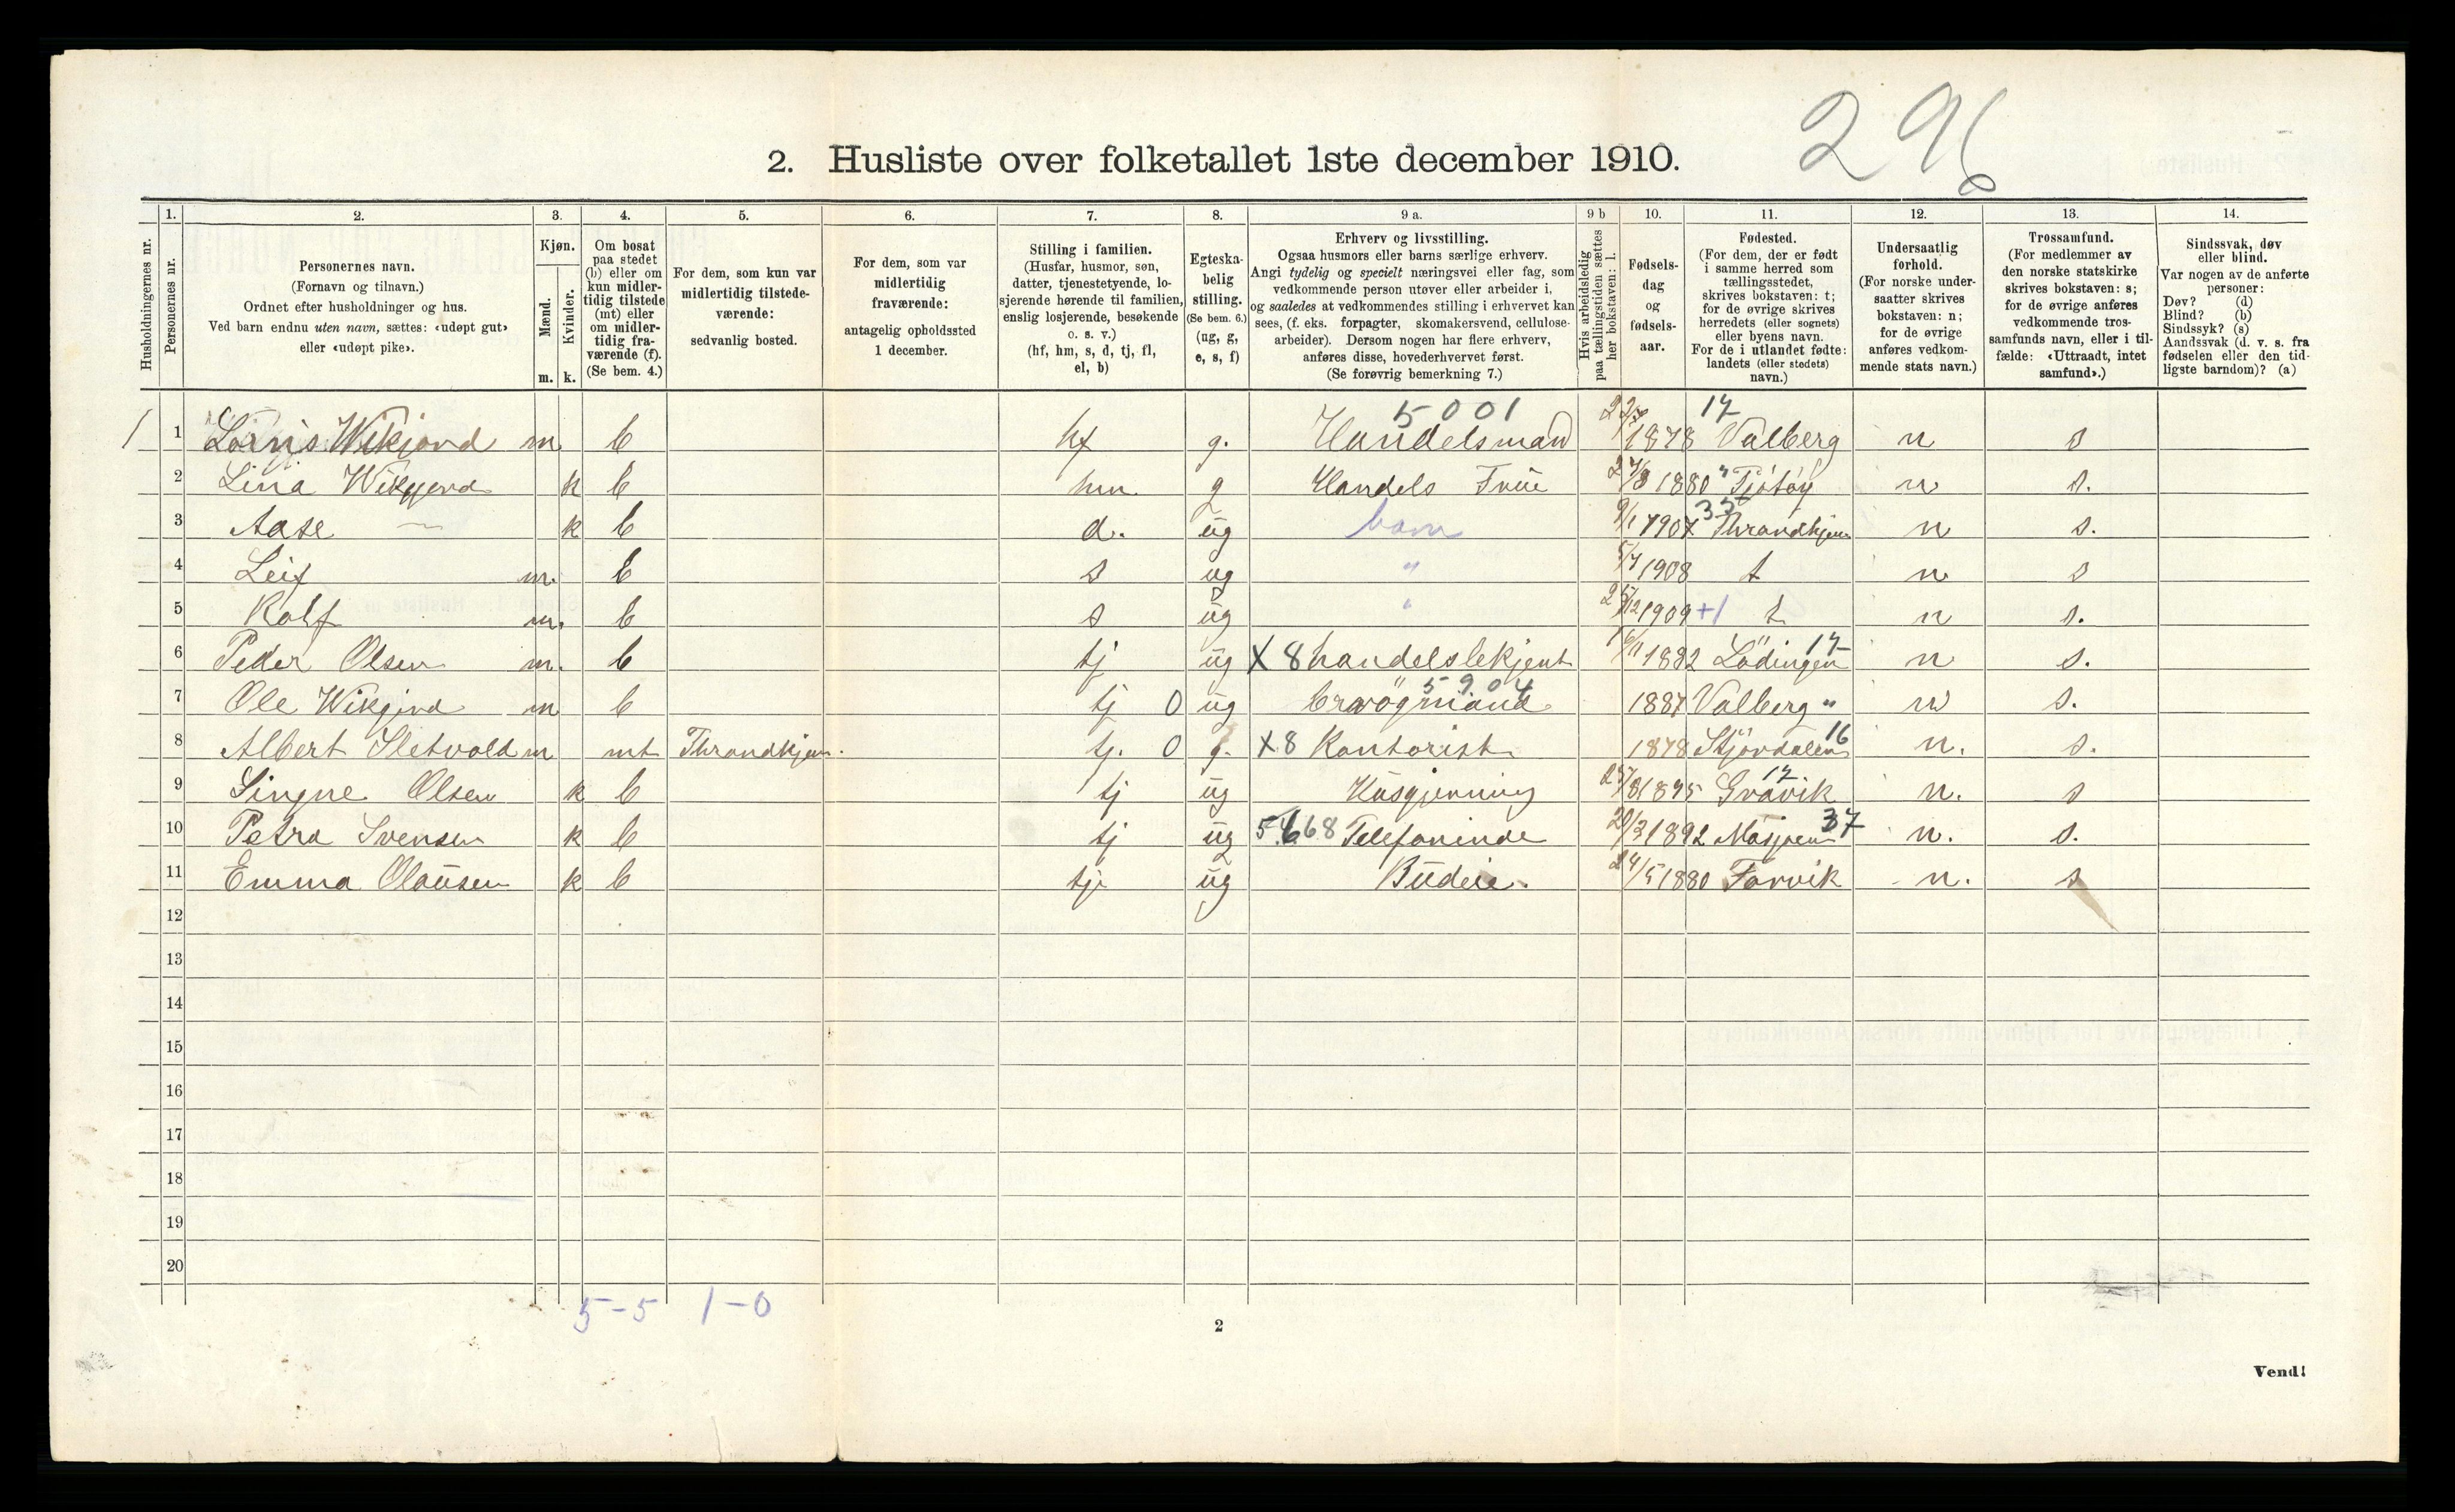 296
2. Husliste over folketallet 1ste december 1910.
Husholdningernes nr.
1.
Personernes nr.
2.
Personernes navn.
(Fornavn og tilnavn.)
Ordnet efter husholdninger og hus.
Ved barn endnu uten navn, sættes: «udøpt gut»
eller «udøpt pike».
3.
Kjøn.
Mænd.
Kvinder.
m. k.
4.
Om bosat
paa stedet
(b) eller om
kun midler-
tidig tilstede
(mt) eller
om midler-
tidig fra-
værende (f).
(Se bem. 4.)
5.
For dem, som kun var
midlertidig tilstede-
værende:
sedvanlig bosted.
6.
For dem, som var
midlertidig
fraværende:
antagelig opholdssted
1 december.
7.
Stilling i familien.
(Husfar, husmor, søn,
datter, tjenestetyende, lo-
sjerende hørende til familien,
enslig losjerende, besøkende
o. s. v.)
(hf, hm, s, d, tj, fl,
el, b)
8.
Egteska-
belig
stilling.
(Se bem. 6.)
(ug, g,
e, s, f)
9 a.
Erhverv og livsstilling.
Ogsaa husmors eller barns særlige erhverv.
Angi tydelig og specielt næringsvei eller fag, som
vedkommende person utøver eller arbeider i,
og saaledes at vedkommendes stilling i erhvervet kan
sees, (f. eks. forpagter, skomakersvend, cellulose-
arbeider). Dersom nogen har flere erhverv,
anføres disse, hovederhvervet først.
(Se forøvrig bemerkning 7.)
9 b
Hvis arbeidsledig
paa tællingstiden sættes
her bokstaven: l.
10.
Fødsels-
dag
og
fødsels-
aar.
11.
Fødested.
(For dem, der er født
i samme herred som
tællingsstedet,
skrives bokstaven: t;
for de øvrige skrives
herredets (eller sognets)
eller byens navn.
For de i utlandet fødte:
landets (eller stedets)
navn.)
12.
Undersaatlig
forhold.
(For norske under-
saatter skrives
bokstaven: n;
for de øvrige
anføres vedkom-
mende stats navn.)
13.
Trossamfund.
(For medlemmer av
den norske statskirke
skrives bokstaven: s;
for de øvrige anføres
vedkommende tros-
samfunds navn, eller i til-
fælde: «Uttraadt, intet
samfund».)
14.
Sindssvak, døv
eller blind.
Var nogen av de anførte
personer:
Døv? (d)
Blind? (b)
Sindssyk? (s)
Aandssvak (d. v. s. fra
fødselen eller den tid-
ligste barndom)? (a)
5001 17
1 1 Wikjord m b hf g. Handelsman 1878 Valberg n s
2 Lina Wikjord k b hm g Handels Frue 1880 " Tjötöy n s.
3 Aase — k b d. ug barn 9/1 1907 35 Thrandhjem n s.
4 Leif m. b s ug " 5/7 1908 t n s
5 Rolf m. b s ug " 1909 +1 t n s.
6 Peder Olsen m. b tj ug X8 handelsbekjent 16/11 1882 Lödingen 17 n s.
7 Ole Wikjord m b tj 0 ug 5904 1887 Valberg " n s.
8 Albert Sletvold m mt Throndhjem. tj. 0 g. X8 Kontorist 1878 Stjördalen 16 n. s.
9 Singne Olsen k b tj ug Husgjerning 1895 17 n. s
10 Petra Svensen k b tj ug Telefoninde 20/3 1892 Mosjøen 37 n. s.
11 Emma Olausen k b tj ug Budeie. 24/5 1880 Forvik n. s
12
13
14
15
16
17
18
19
20
5-5 1-0
2
Vend!